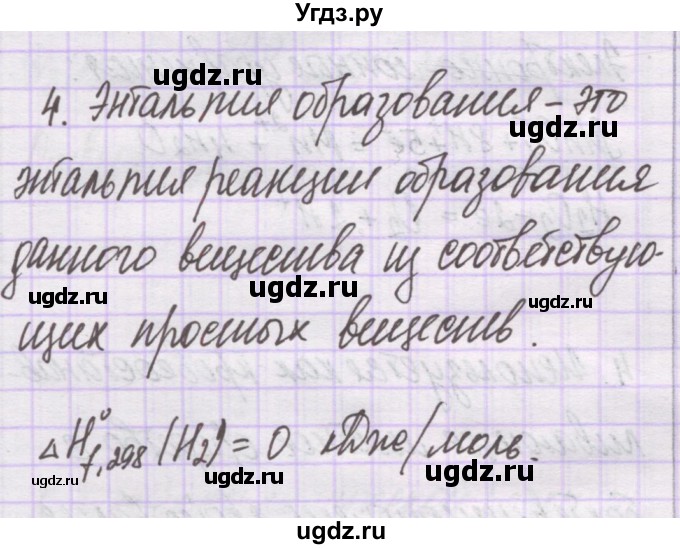 Угдз.ру
ugdz.ru
4. Энтальпия образования – это
ugdz.ru
энтальпия реакции образования
данного вещества из соответствую-
ugdz.ru ugdz.ru ugdz.ru
щих простых веществ.
ΔH°f,298 (H2) = 0 кДж/моль.
ugdz.ru ugdz.ru ugdz.ru
ugdz.ru